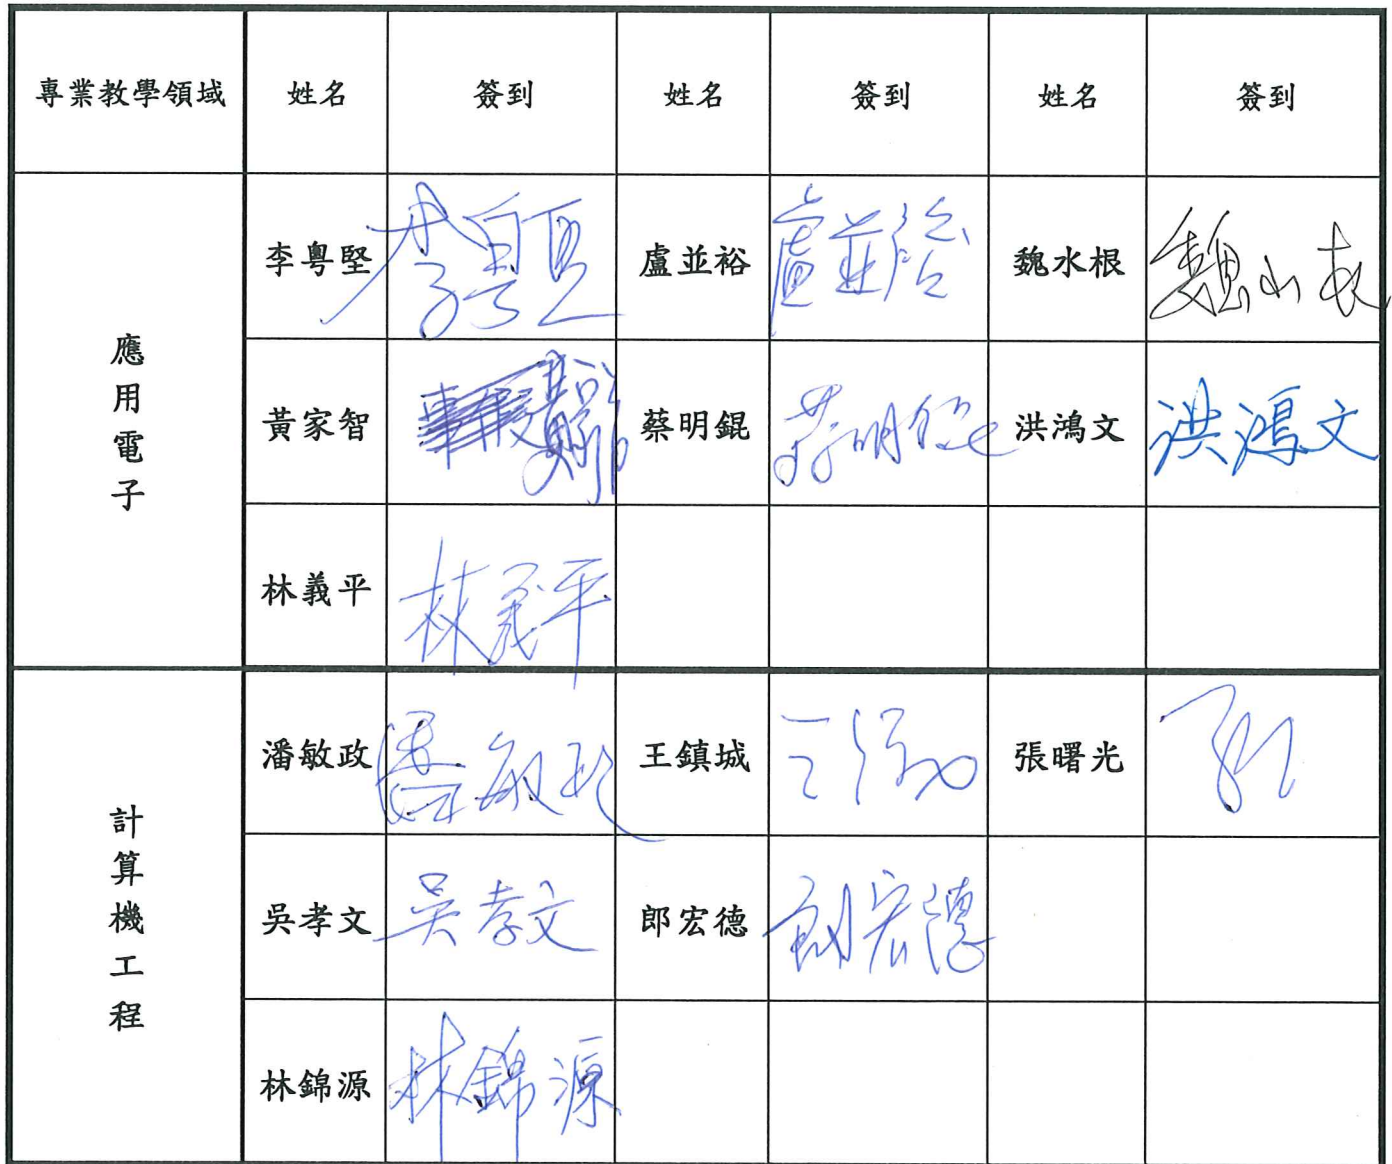 專業教學領域 姓名 簽到 姓名 簽到 姓名 簽到
應用電子
李粵堅 李粵堅 盧並裕 盧並裕 魏水根 魏水根
黃家智 蔡明錕 蔡明錕 洪鴻文 洪鴻文
林義平 林義平
計算機工程
潘敏政 潘敏政 王鎮城 張曙光
吳孝文 吳孝文 郎宏德 郎宏德
林錦源 林錦源